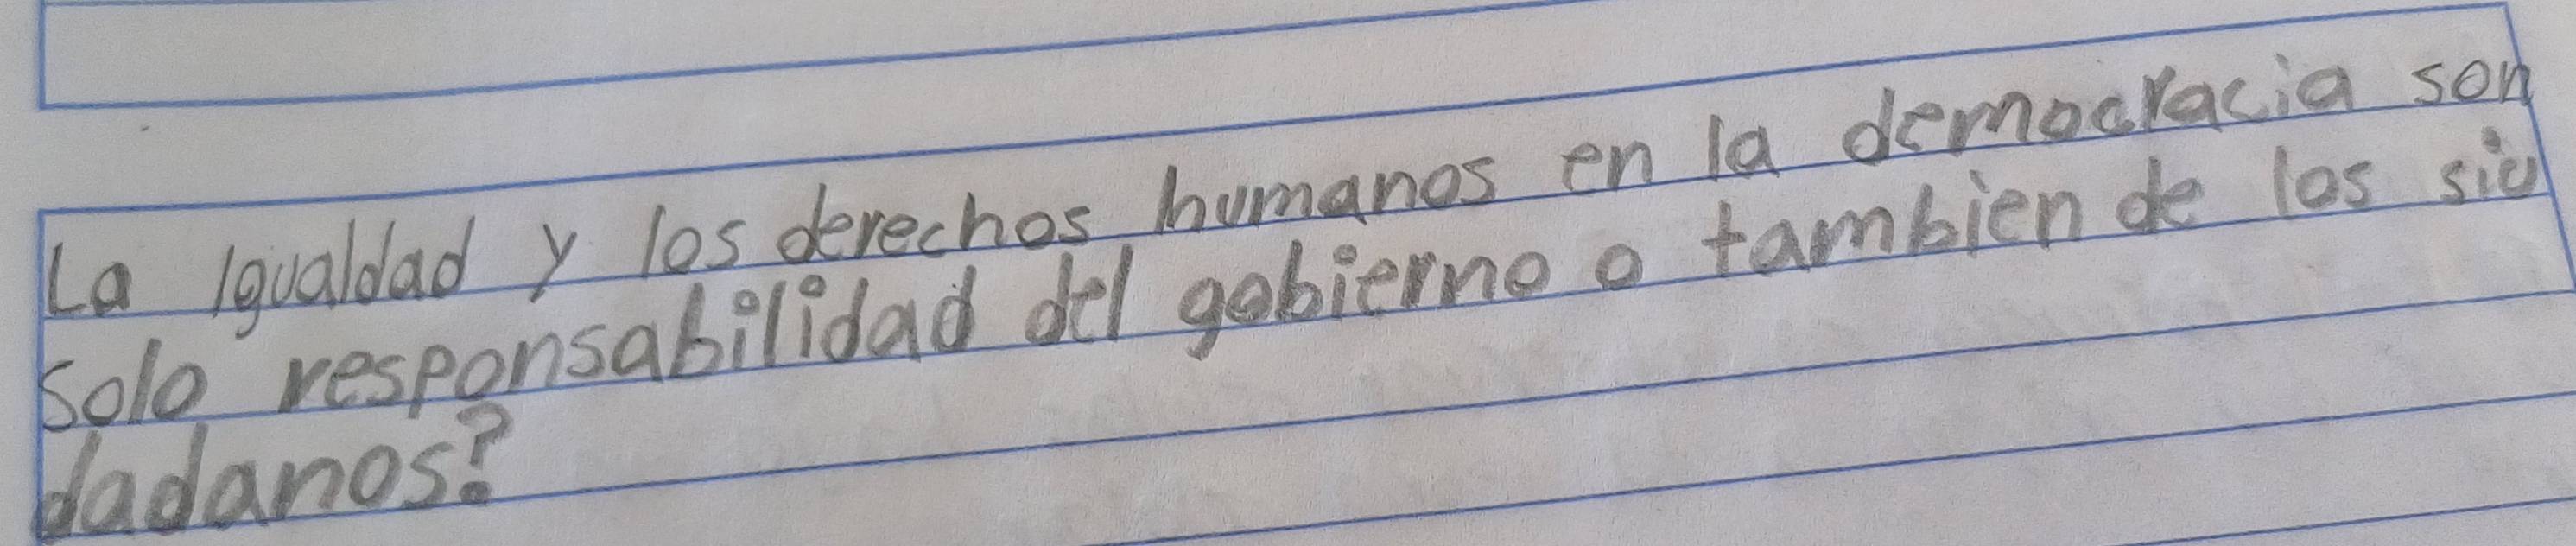 La igualdad y los derechos humanos en la democracia son
solo responsabilidad del gobierno o tambien de los siu
dadanos?